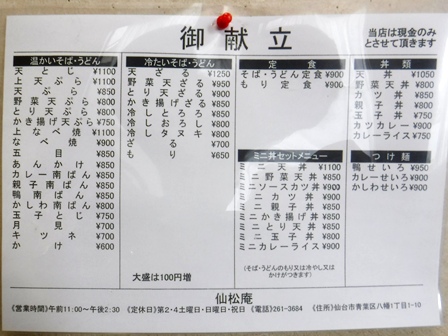 御献立
当店は現金のみ
とさせて頂きます
温かいそば・うどん
天とじ ¥1100
上天ぷら ¥1100
天ぷら ¥850
野菜天ぷら ¥800
とり天ぷら ¥800
かき揚げ天ぷら ¥750
上なべ焼 ¥1100
なべ焼 ¥900
五目 ¥850
あんかけ ¥850
カレー南ばん ¥850
親子南ばん ¥850
鴨南ばん ¥850
かしわ南ばん ¥850
玉子とじ ¥750
月見 ¥700
キツネ ¥700
かけ ¥600
冷たいそば・うどん
天ざる ¥1250
野菜天ざる ¥950
とり天ざる ¥900
かき揚げざる ¥850
冷しとろろ ¥850
冷しおろし ¥800
冷しタヌキ ¥800
ざる ¥700
もり ¥650
大盛は100円増
定食
そば・うどん定食 ¥900
もり定食 ¥900
ミニ丼セットメニュー
ミニ天丼 ¥1100
ミニ野菜天丼 ¥850
ミニソースカツ丼 ¥900
ミニカツ丼 ¥900
ミニ親子丼 ¥850
ミニかき揚げ丼 ¥850
ミニとり天丼 ¥850
ミニ玉子丼 ¥800
ミニカレーライス ¥900
(そば・うどんのもり又は冷やし又は
かけがつきます)
丼類
天丼 ¥1050
野菜天丼 ¥800
カツ丼 ¥850
親子丼 ¥800
玉子丼 ¥750
カツカレー ¥900
カレーライス ¥750
つけ麺
鴨せいろ ¥950
カレーせいろ ¥900
かしわせいろ ¥900
仙松庵
《営業時間》午前11:00〜午後2:30 《定休日》第2・4土曜日・日曜日・祝日 《電話》261-3684 《住所》仙台市青葉区八幡1丁目1-10